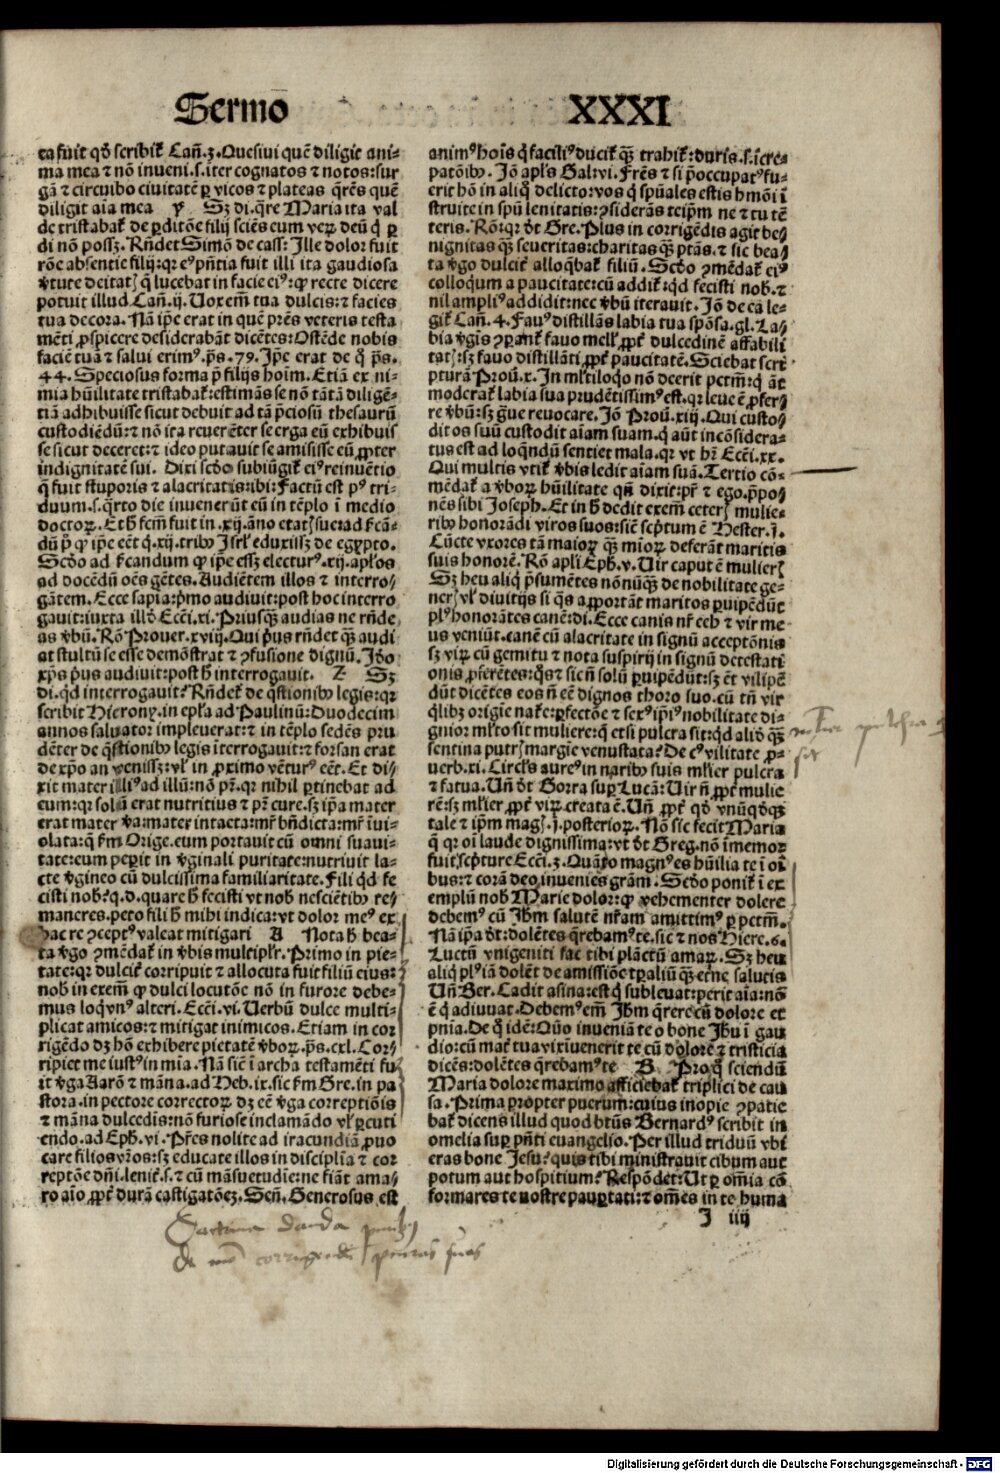 Sermo XXXI
ta fuit qd̕ scribit᷑ Cañ.3. Quesiui quē diligit ani-
ma mea ⁊ nō inveni.s.iter cognatos ⁊ notos: sur
gā ⁊ circuibo ciuitatē ꝑ vicos ⁊ plateas q̄rēs quē
diligit aīa mea Sꝫ di.q̄re Maria ita val
de tristabat᷑ de ꝑditōe filij sciēs eum veꝝ deū q̄ ꝑ
di nō possꝫ. Rñdet Simō de cass: Ille dolor fuit
rōe absentie filij: qr eiꝰ pñtia fuit illi ita gaudiosa
v̕tute deitatꝭ q̄ lucebat in facie eiꝰ: ꝙ recte dicere
potuit illud Cañ.ij. Uox em̄ tua dulcis: ⁊ facies
tua decora. Nā ip̄e erat in quē p̄res veteris testa
mēti ꝓspicere desiderabāt dicētes: Ostēde nobis
faciē tuā ⁊ salui erimꝰ. p̄s.79. Ip̄e erat de q̄ p̄s.
44. Speciosus forma p̄ filijs hoīm. Etiā ex ni-
mia hūilitate tristabat᷑: estimās se nō tātā diligē-
tiā adhibuisse sicut debuit ad tā p̄ciosū thesaurū
custodiēdū: ⁊ nō ita reuerēter se erga eū exhibuis
se sicut deceret: ⁊ ideo putauit se amisisse eū ꝓpter
indignitatē sui. Dixi scd̕o subiūgit᷑ eiꝰ reinuētio
q̄ fuit stuporis ⁊ alacritatis: ibi: Factū est pꝰ tri-
duum.s.q̄rto die inuenerūt eū in tēplo ī medio
doctoꝝ. Et h̄ fcm̄ fuit in.xij. āno etatꝭ sue: ad f᷑cā-
dū p̄ q̄ ip̄e eēt q̄.xij. tribꝰ Isrł eduxissꝫ de egypto.
Scd̕o ad f᷑candum ꝙ ip̄e essꝫ electurꝰ.xij. apłos
ad docēdū oēs gētes. Audiētem illos ⁊ interro/
gātem. Ecce sapīa: p̄mo audiuit: post hoc interro
gauit: iuxta illd̕ Ecci.xi. Priusqꝫ audias ne rñde
as v̕bū. Rō Prouer.xviij. Qui p̄us rñdet qꝫ audi
at stultū se esse demōstrat ⁊ ꝯfusione dignū. Id̕o
xp̄s p̄us audiuit: post h̄ interrogauit. Z Sꝫ
di. qd̕ interrogauit? Rñdet᷑ de q̄stionibꝰ legis: qr
scribit Hierony. in epła ad Paulinū: Duodecim
annos saluator impleuerat: ⁊ in tēplo sedēs pru
dēter de q̄stionibꝰ legis īterrogauit: ⁊ forsan erat
de xp̄o an venissꝫ: vł in ꝓximo vēturꝰ eēt. Et di-
xit mater illiꝰ ad illū: nō pr̄. qr nihil ꝑtinebat ad
eum: qr solū erat nutritius ⁊ pr̄ cure. sꝫ ip̄a mater
erat mater v̕a: mater intacta: mr̄ bñdicta: mr̄ īui-
olata: q̄ fm̄ Orige. eum portauit cū omni suaui-
tate: eum peꝑit in v̕ginali puritate: nutriuit la-
cte v̕gineo cū dulcissima familiaritate. Fili qd̕ fe
cisti nob̕? q.d. quare h̄ fecisti vt nob̕ nesciētibꝰ re/
maneres. peto fili h̄ mihi indica: vt dolor meꝰ ex
hac re ꝯceptꝰ valeat mitigari A Nota h̄ bea-
ta v̕go ꝯmēdat᷑ in v̕bis multiplr̕. Primo in pie-
tate: qr dulcit᷑ corripuit ⁊ allocuta fuit filiū eius:
nob̕ in exem̄ ꝙ dulci locutōe nō in furore debe-
mus loq̄ vnꝰ alteri. Ecci.vi. Uerbū dulce multi-
plicat amicos: ⁊ mitigat inimicos. Etiam in cor
rigēdo dꝫ hō exhibere pietatē v̕boꝝ. p̄s.cxl. Cor/
ripiet me iustꝰ in mīa. Nā sic̄ ī archa testamēti fu/
it v̕ga Aarō ⁊ māna. ad Heb.ix. sic fm̄ Gre. in pa
stora. in pectore correctoꝝ dꝫ eē v̕ga correptiōis
⁊ māna dulcedīs: nō furiose inclamādo vł ꝑcuti
endo. ad Eph.vi. P̄res nolite ad iracundiā ꝓuo
care filios vr̄os: sꝫ educate illos in disciplīa ⁊ cor
reptōe dñi. lenit᷑.s. ⁊ cū māsuetudīe: ne fiāt ama/
ro aīo ꝓpt̕ durā castigatōeꝫ. Señ. Generosus est
animꝰ hoīs q̄ faciliꝰ ducit᷑ qꝫ trahit᷑: duris.s. īcre-
patōibꝰ. Iō apl̕s Gal: vi. Fr̄es ⁊ si p̄occupatꝰ fu-
erit hō in aliq̄ delicto: vos q̄ spūales estis hmōi ī
struite in spū lenitatis: ꝯsiderās teip̄m ne ⁊ tu tē
teris. Rō: qr d̕t Gre. Plus in corrigēdis agit be/
nignitas qꝫ seueritas: charitas qꝫ ptās. ⁊ sic bea/
ta v̕go dulcit᷑ alloq̄bat᷑ filiū. Scd̕o ꝯmēdat᷑ eiꝰ
colloqium a paucitate: cū addit᷑: qd̕ fecisti nob̕. ⁊
nil ampliꝰ addidit: nec v̕bū iterauit. Iō de ea le-
git᷑ Cañ.4. Fauꝰ distillās labia tua spōsa. gl. La-
bia v̕gīs ꝯparant᷑ fauo mell̕ ꝓpt̕ dulcedinē affabili
tatꝭ: sꝫ fauo distillāti ꝓpt̕ paucitatē. Sciebat scri
pturā Proū.x. In mltiloq̄o nō deerit pctm̄: q̄ āt
moderat᷑ labia sua prudētissimꝰ est. qr leue ē ꝓfer/
re v̕bū: sꝫ g̕ue reuocare. Iō Proū.xiij. Qui custo/
dit os suū custodit aīam suam. q̄ aūt incōsidera-
tus est ad loq̄ndū sentiet mala. qr vt hr̄ Ecci.xx.
Qui multis vtit᷑ v̕bis ledit aīam suā. Tertio cō-
mēdat᷑ a v̕boꝝ hūilitate qñ dixit: pr̄ ⁊ ego. p̄po-
nēs sibi Ioseph. Et in h̄ dedit exem̄ ceterꝭ mulie-
ribꝰ honorādi viros suos: sic̄ scptum ē Hester.j.
Cūcte vxores tā maioꝝ qꝫ mīoꝝ deferāt maritis
suis honorē. Rō apl̕i Eph.v. Uir caput ē mulierꝭ
Sꝫ heu aliq̄ p̄sumētes nōnūqꝫ de nobilitate ge-
nerꝭ vł diuitijs si q̄s apportāt maritos ꝑuipēdūt
plꝰ honorātes canē: di. Ecce canis nr̄ eēh ⁊ vir me
us veniūt. canē cū alacritate in signū acceptōnis
sꝫ viꝝ cū gemitu ⁊ nota suspirij in signū detestati
onis p̄ferētes: q̄s ⁊ sic ñ solū ꝑuipēdūt: sꝫ ēt vilipē
dūt dicētes eos ñ eē dignos thoro suo. cū tñ vir
q̄libꝫ origīe nat᷑e: ꝑfectōe ⁊ sexꝰ ip̄iꝰ nobilitate di-
gnior mlto sit muliere: q̄ etsi pulcra sit: qd̕ aliō qꝫ
sentina putrꝭ margīe venustata? De eꝰ vilitate ꝓ-
uerb.xi. Circl̕s aureꝰ in naribꝰ suis ml̕ier pulcra
⁊ fatua. Uñ d̕t Gorra suꝑ Lucā: Uir ñ ꝓpt̕ mulie
rē: sꝫ ml̕ier ꝓpt̕ viꝝ creata ē. Uñ ꝓpt̕ qd̕ vnūqd̕qꝫ
tale ⁊ ip̄m magꝭ. j. posterioꝝ. Nō sic fecit Maria
q̄ qr oī laude dignissima: vt d̕t Greg. nō īmemor
fuit scpture Ecci.3. Quāto magnꝰ es hūilia te ī oī
bus: ⁊ corā deo inuenies grām. Scd̕o ponit᷑ ī ex
emplū nob̕ Marie dolor: ꝙ vehementer dolere
debemꝰ cū Ihm̄ salutē nr̄am amittimꝰ ꝑ pctm̄.
Nā ip̄a d̕t: dolētes q̄rebamꝰ te. sic ⁊ nos Hiere.6.
Luctū vnigeniti fac tibi plāctū amaꝝ. Sꝫ heu
aliq̄ plꝰ iā dolēt de amissiōe tꝑaliū qꝫ etne salutis
Uñ Ber. Cadit asina: est q̄ subleuat: perit aīa: nō
ē q̄ adiuuat. Debemꝰ em̄ Ihm̄ q̄rere cū dolore et
pnīa. De q̄ idē: Quō inueniā te o bone Ihū ī gau
dio: cū mat᷑ tua vix īuenerit te cū dolore ⁊ tristicia
dicēs: dolētes q̄rebamꝰ te B Pro q̄ sciendū
Maria dolore maximo afficiebat᷑ triplici de cau
sa. Prima propter puerum: cuius inopie ꝯpatie
bat᷑ dicens illud quod btūs Bernardꝰ scribit in
omelia suꝑ pñti euangelio. Per illud triduū vbi
eras bone Iesu? quis tibi ministrauit cibum aut
potum aut hospitium? Respōdet: Ut ꝑ om̄ia cō
formares te nostre pauꝑtati: ⁊ om̄es in te huma
I iiij
pulchra
sit
danda
corrigendi pueros suos
Digitalisierung gefördert durch die Deutsche Forschungsgemeinschaft - DFG